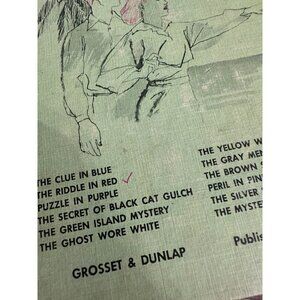 THE CLUE IN BLUE
THE RIDDLE IN RED
PUZZLE IN PURPLE
THE SECRET OF BLACK CAT GULCH
THE GREEN ISLAND MYSTERY
THE GHOST WORE WHITE
THE YELLOW W
THE GRAY MEN
THE BROWN S
PERIL IN PIN
THE SILVER
THE MYSTE
GROSSET & DUNLAP
Publis